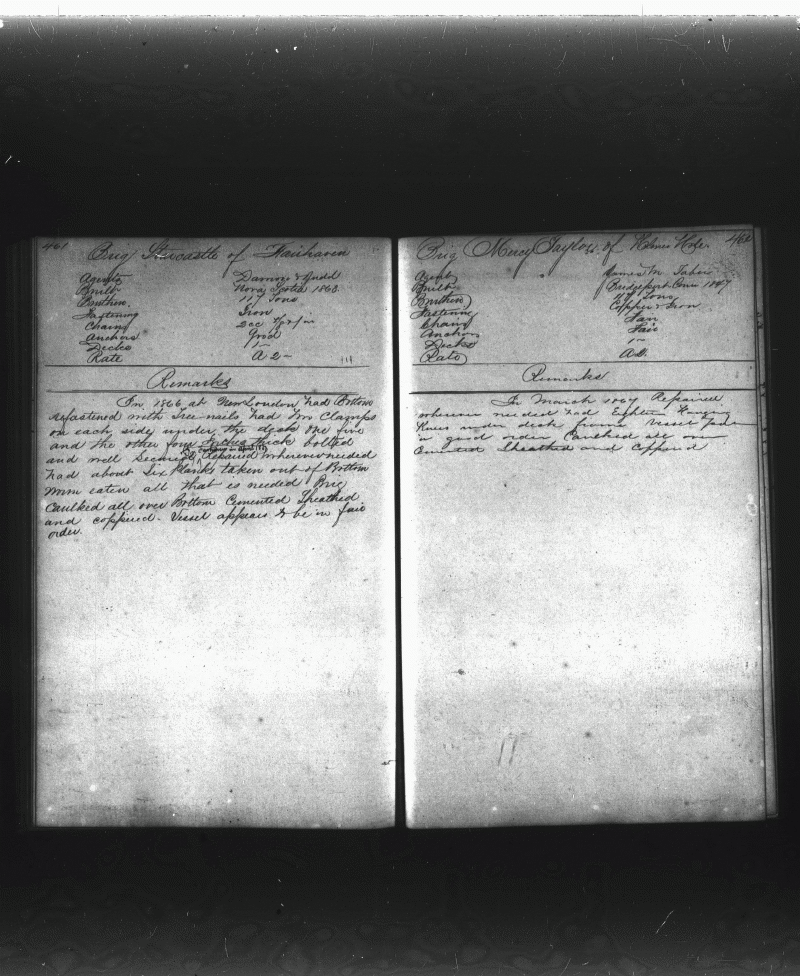 461
Brig Starcastle of Fairhaven
Agents Damon & Judd
Built Nova Scotia 1863
Burthen 117 Tons
Fastening Iron
Chains
Anchors Good
Decks "
Rate A 2 -
Remarks
In 1866 at New London had Bottom
refastened with Tree-nails had two Clamps
on each side under the deck one five
and the other four Inches thick bolted
and well Secured Repaired wherever needed
had about Six planks taken out of Bottom
worm eaten all that is needed Brig
Caulked all over Bottom Cemented Sheathed
and coppered. Vessel appears to be in fair
order.
Brig Mercy Taylor of Holmes Hole 460
Agent James M.
Built Bridgeport Conn 1847
Burthen Tons
Fastening Copper & Iron
Chains Fair
Anchors Fair
Decks "
Rate A2.
Remarks
In March 1867 Repaired
wherever needed had Eighteen Hanging
Knees under deck frame Vessel
in good order Caulked all over
Cemented Sheathed and Coppered